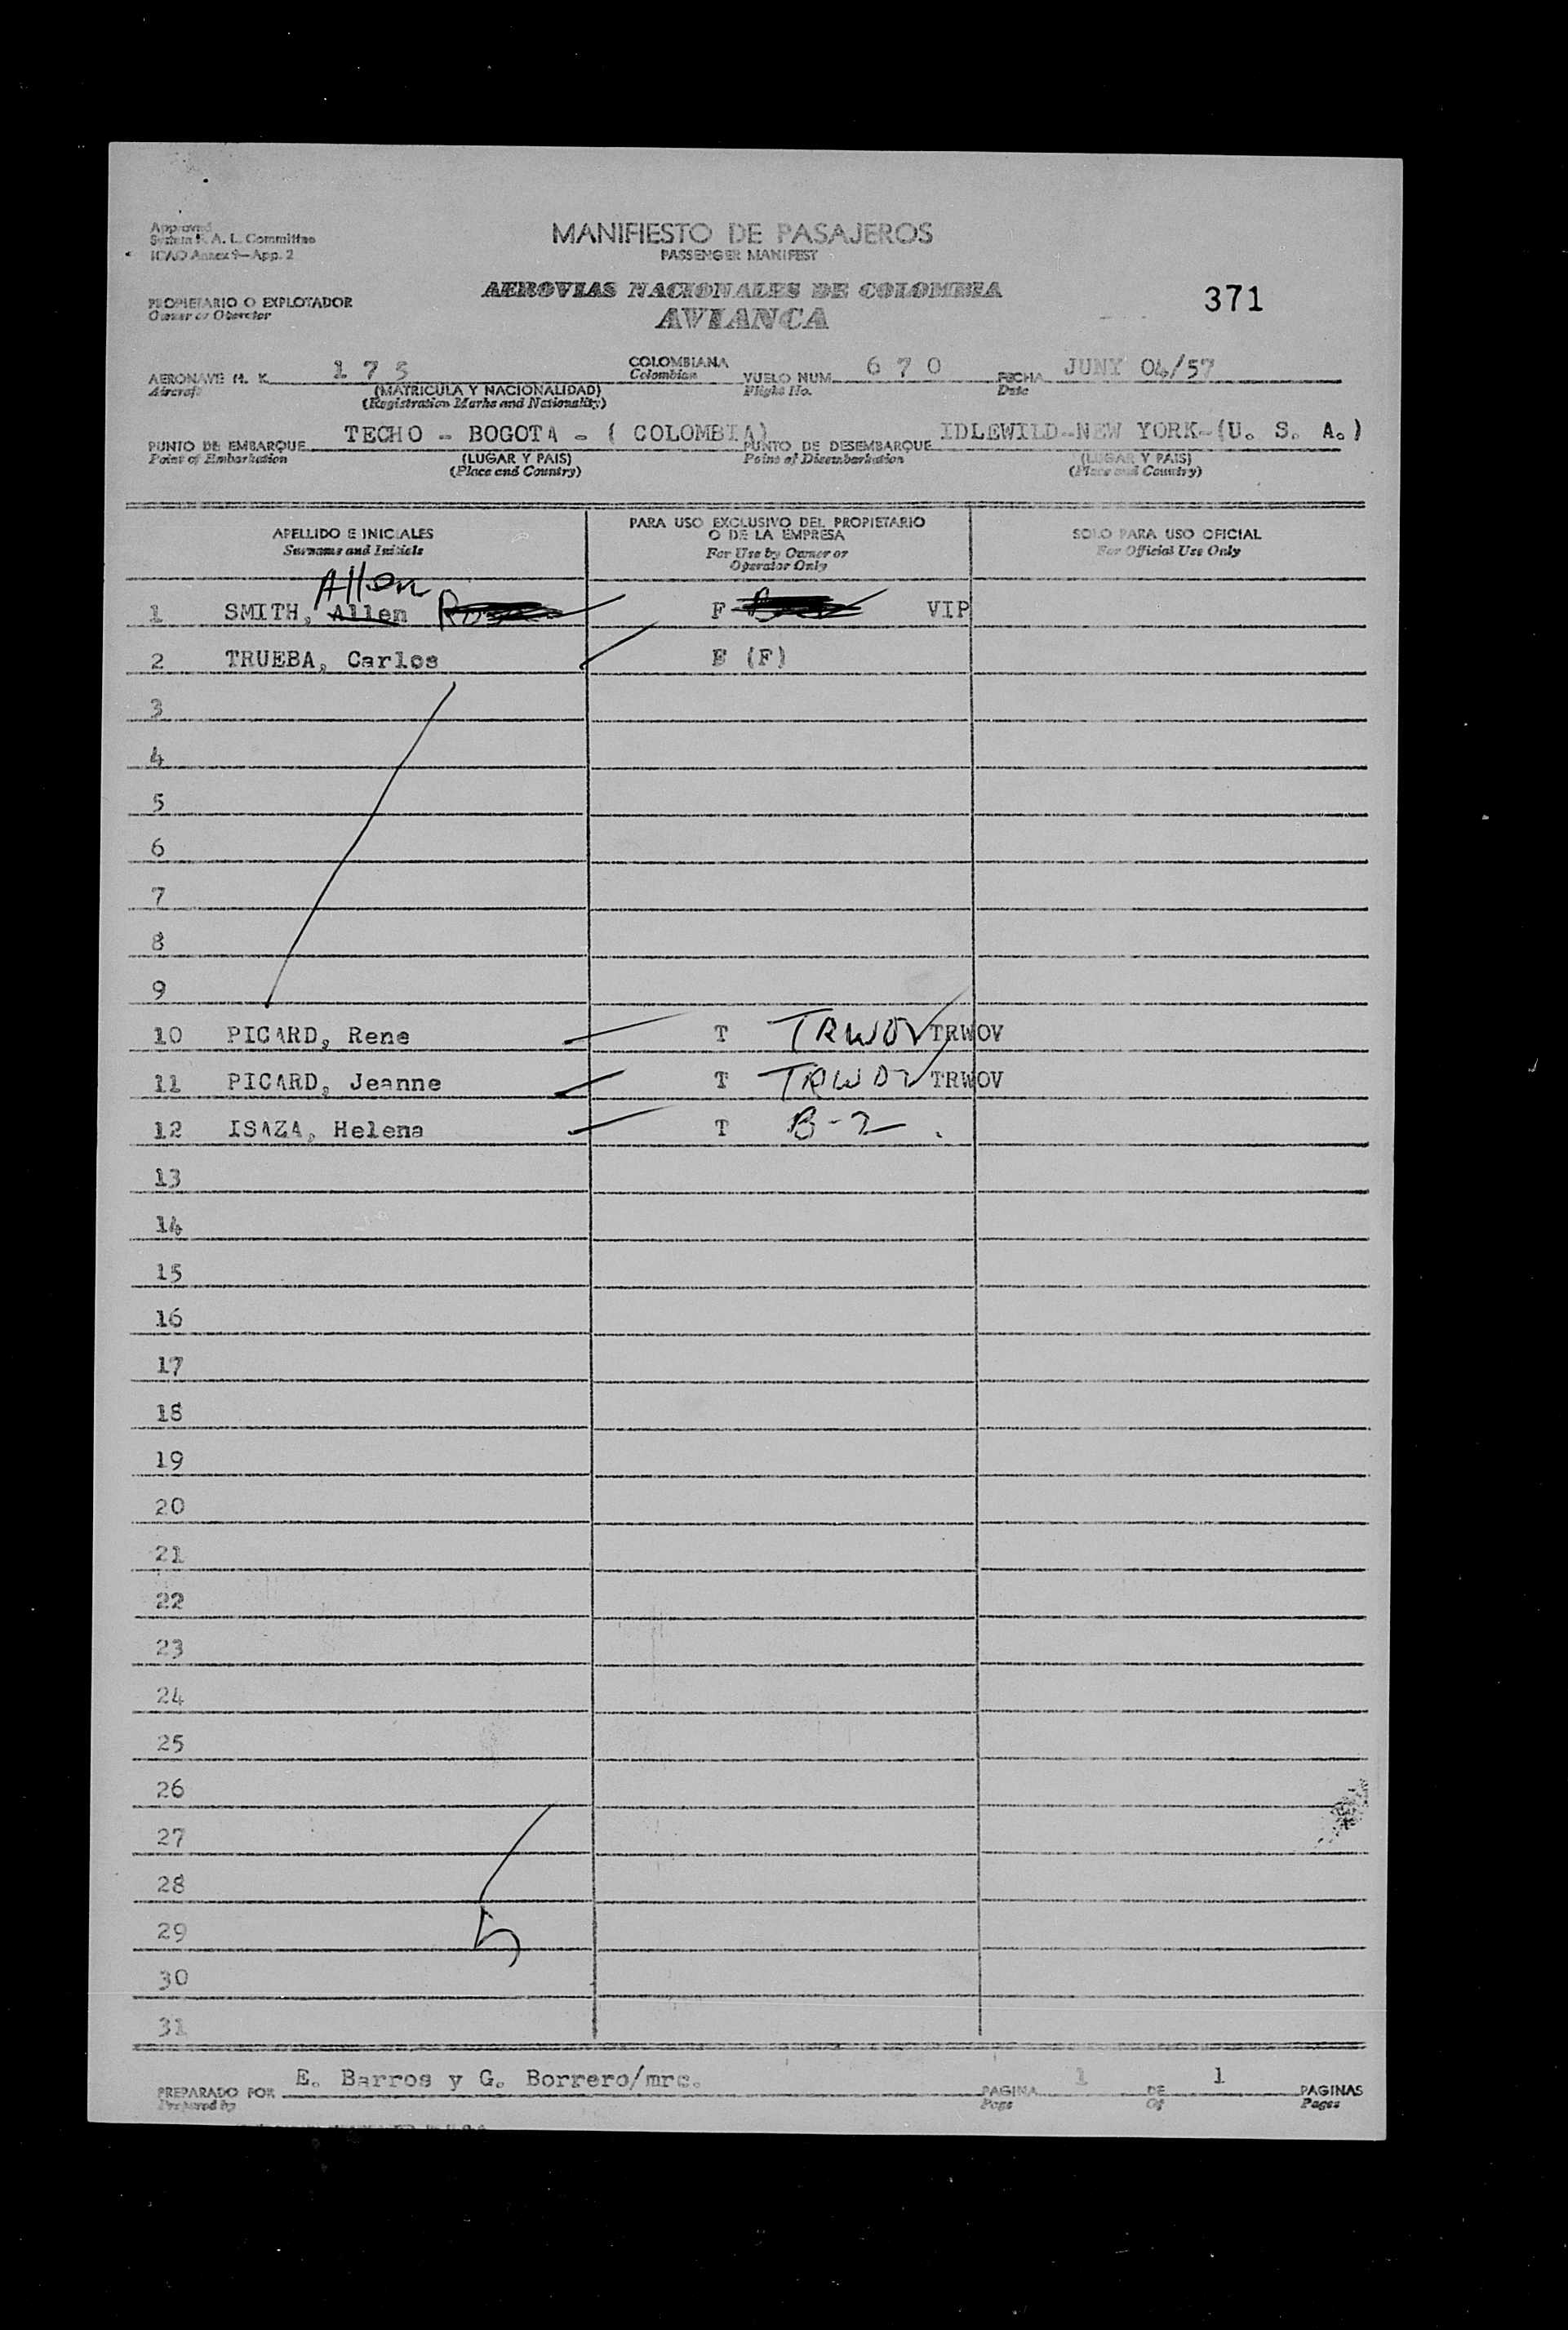 Approved
System F. A. L. Committee
ICAO Annex 9—App. 2
MANIFIESTO DE PASAJEROS
PASSENGER MANIFEST
AEROVIAS NACIONALES DE COLOMBIA
AVIANCA
371
PROPIETARIO O EXPLOTADOR
Owner or Operator
AERONAVE H. K. 1 7 5 COLOMBIANA VUELO NUM. 6 7 0 FECHA JUNY 04/57
Aircraft (MATRICULA Y NACIONALIDAD) Colombian Flight No. Date
(Registration Marks and Nationality)
PUNTO DE EMBARQUE TECHO - BOGOTA - ( COLOMBIA) PUNTO DE DESEMBARQUE IDLEWILD-NEW YORK-(U. S. A.)
Point of Embarkation (LUGAR Y PAIS) Point of Disembarkation (LUGAR Y PAIS)
(Place and Country) (Place and Country)
APELLIDO E INICIALES PARA USO EXCLUSIVO DEL PROPIETARIO O DE LA EMPRESA SOLO PARA USO OFICIAL
Surname and Initials For Use by Owner or Operator Only For Official Use Only
Allen
1 SMITH, Allen F VIP
2 TRUEBA, Carlos F (F)
3
4
5
6
7
8
9
10 PICARD, Rene T TRWOV TRWOV
11 PICARD, Jeanne T TRWOV TRWOV
12 ISAZA, Helena T B-2
13
14
15
16
17
18
19
20
21
22
23
24
25
26
27
28
29
5
30
31
PREPARADO POR E. Barros y G. Borrero/mrc. PAGINA 1 DE 1 PAGINAS
Prepared by Page Of Pages